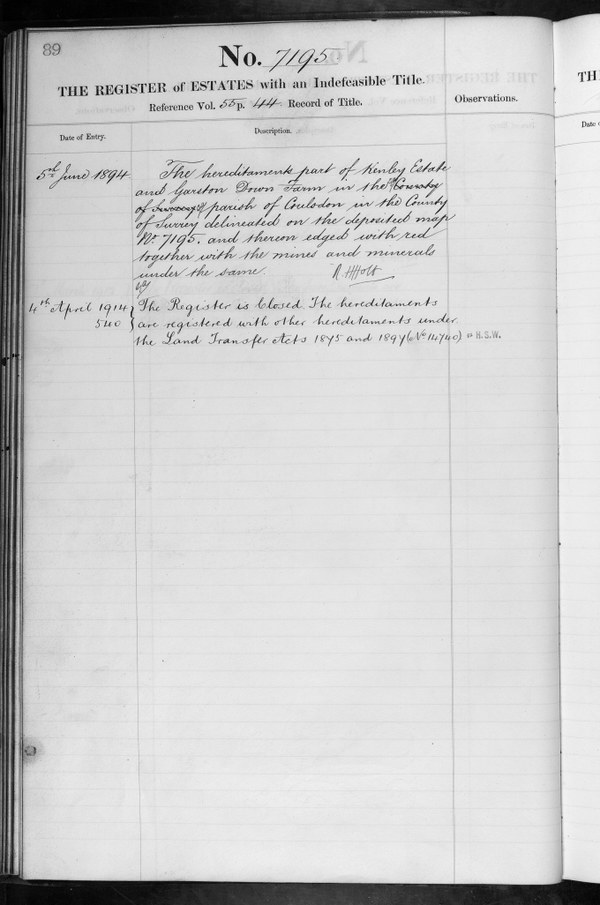 89
No. 7195
THE REGISTER of ESTATES with an Indefeasible Title.
Reference Vol. 55 p. 44 Record of Title.
Observations.
Date of Entry.
Description.
5th June 1894
The hereditaments part of Kenley Estate
and Garston Down Farm in the County
of Surrey parish of Coulsdon in the County
of Surrey delineated on the deposited map
No. 7195. and thereon edged with red
together with the mines and minerals
under the same. R H Holt
4th April 1914 The Register is Closed. The hereditaments
540 are registered with other hereditaments under
the Land Transfer Acts 1875 and 1897 (No 14740) H.S.W.
TH
Date